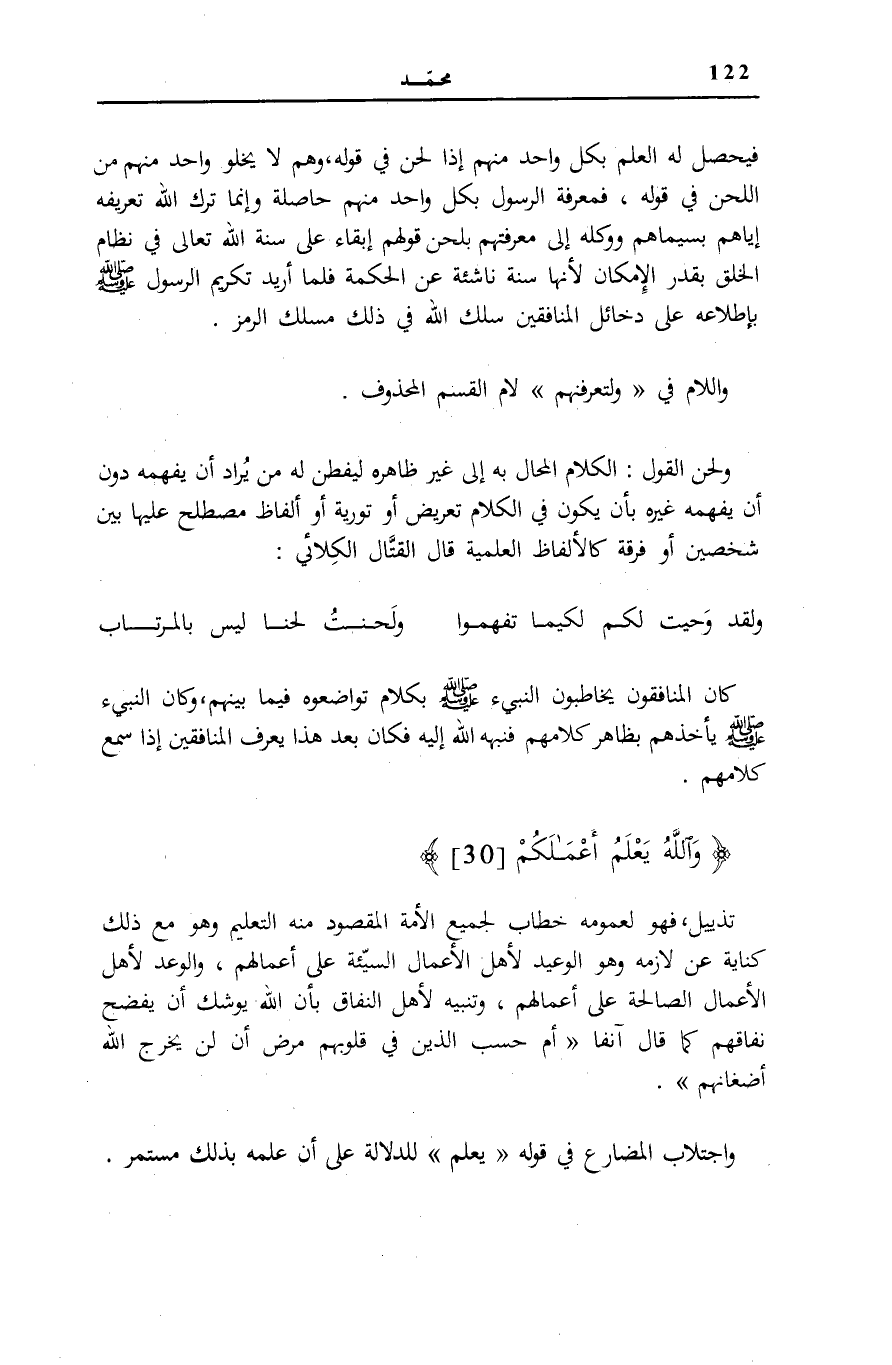 122
محمّد
فيحصل له العلم بكل واحد منهم إذا لحن في قوله،وهم لا يخلو واحد منهم من
اللحن في قوله ، فمعرفة الرسول بكل واحد منهم حاصلة وإنما ترك الله تعريفه
إياهم بسيماهم ووكله إلى معرفتهم بلحن قولهم إبقاء على سنة الله تعالى في نظام
الخلق بقدر الإمكان لأنها سنة ناشئة عن الحكمة فلما أريد تكريم الرسول ﷺ
بإطلاعه على دخائل المنافقين سلك الله في ذلك مسلك الرمز .
واللام في « ولتعرفنهم » لام القسم المحذوف .
ولحن القول : الكلام المحال به إلى غير ظاهره ليفطن له من يُراد أن يفهمه دون
أن يفهمه غيره بأن يكون في الكلام تعريض أو تورية أو ألفاظ مصطلح عليها بين
شخصين أو فرقة كالألفاظ العلمية قال القتَّال الكِلائي :
ولقد وَحيت لكم لكيما تفهموا ولَحنتُ لحنا ليس بالمرتاب
كان المنافقون يخاطبون النبيء ﷺ بكلام تواضعوه فيما بينهم،وكان النبيء
ﷺ يأخذهم بظاهر كلامهم فنبهه الله إليه فكان بعد هذا يعرف المنافقين إذا سمع
كلامهم .
﴿ وَٱللَّهُ يَعْلَمُ أَعْمَـٰلَكُمْ [30] ﴾
تذييل،فهو لعمومه خطاب لجميع الأمة المقصود منه التعليم وهو مع ذلك
كناية عن لازمه وهو الوعيد لأهل الأعمال السيّئة على أعمالهم ، والوعد لأهل
الأعمال الصالحة على أعمالهم ، وتنبيه لأهل النفاق بأن الله يوشك أن يفضح
نفاقهم كما قال آنفا « أم حسب الذين في قلوبهم مرض أن لن يخرج الله
أضغانهم » .
واجتلاب المضارع في قوله « يعلم » للدلالة على أن علمه بذلك مستمر .